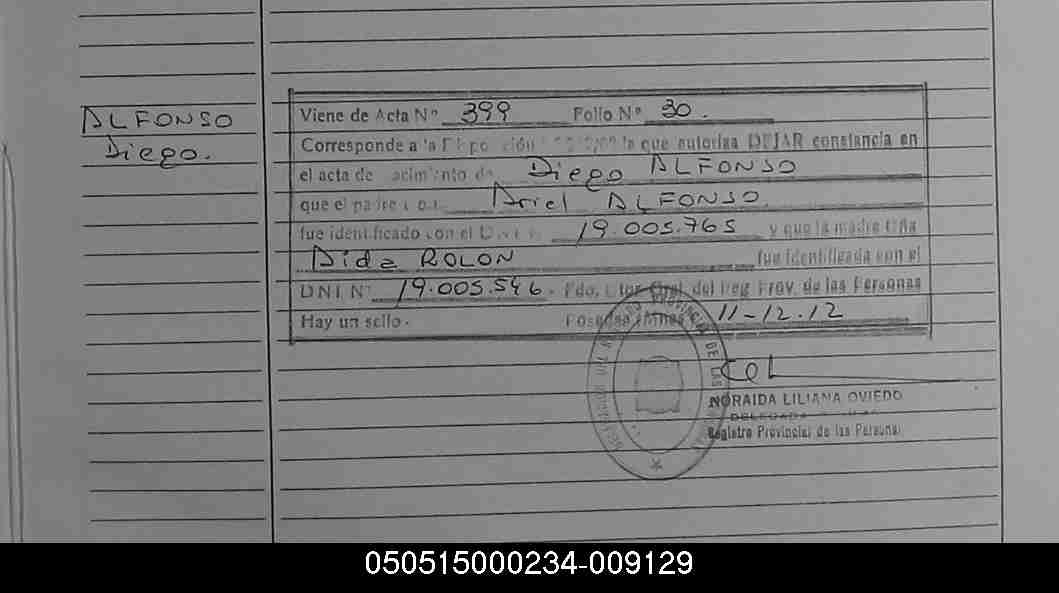 ALFONSO
Diego.
Viene de Acta Nº 399 Folio Nº 30.
Corresponde a la la que autoriza DEJAR constancia en
el acta de nacimiento de Diego ALFONSO
que el padre Ariel ALFONSO.
fue identificado con el D.N.I. 19.005.765 y que la madre Dña
Aida ROLON fue identificada con el
DNI Nº 19.005.546 - Fdo. Dtor. Gral. del Reg. Prov. de las Personas
Hay un sello. Posadas Mnes 11-12.12
PROVINCIAL DE LAS
NORAIDA LILIANA OVIEDO
DELEGADA
Registro Provincial de las Personas
050515000234-009129